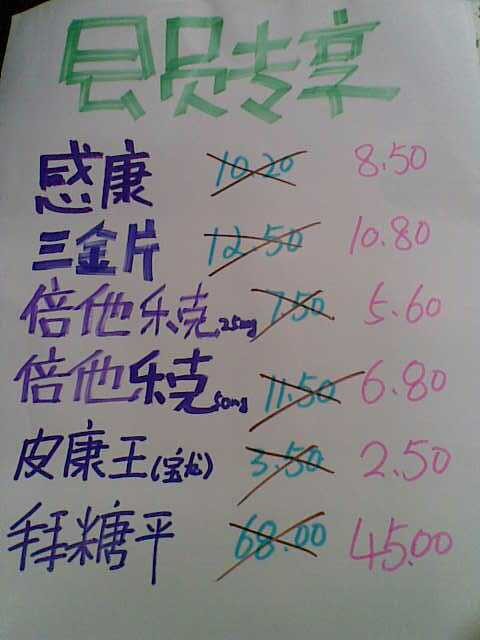 会员专享
感康 10.20 8.50
三金片 12.50 10.80
倍他乐克25mg 7.50 5.60
倍他乐克50mg 11.50 6.80
皮康王(宝龙) 3.50 2.50
拜糖平 68.00 45.00